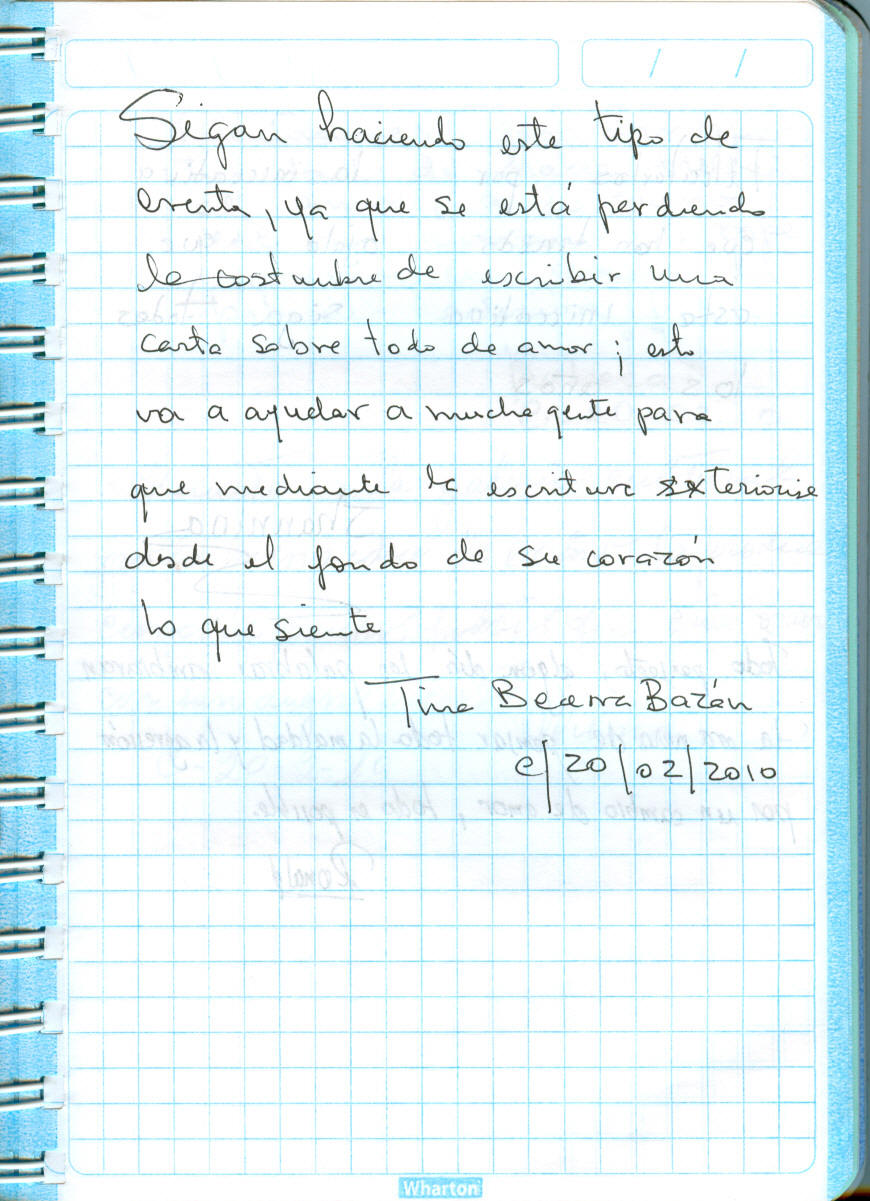 Sigan haciendo este tipo de
evento, ya que se está perdiendo
la costumbre de escribir una
carta sobre todo de amor; esto
va a ayudar a mucha gente para
que mediante la escritura exteriorise
desde el fondo de su corazón
lo que siente
Tina Becerra Bazán
e/20/02/2010
Wharton